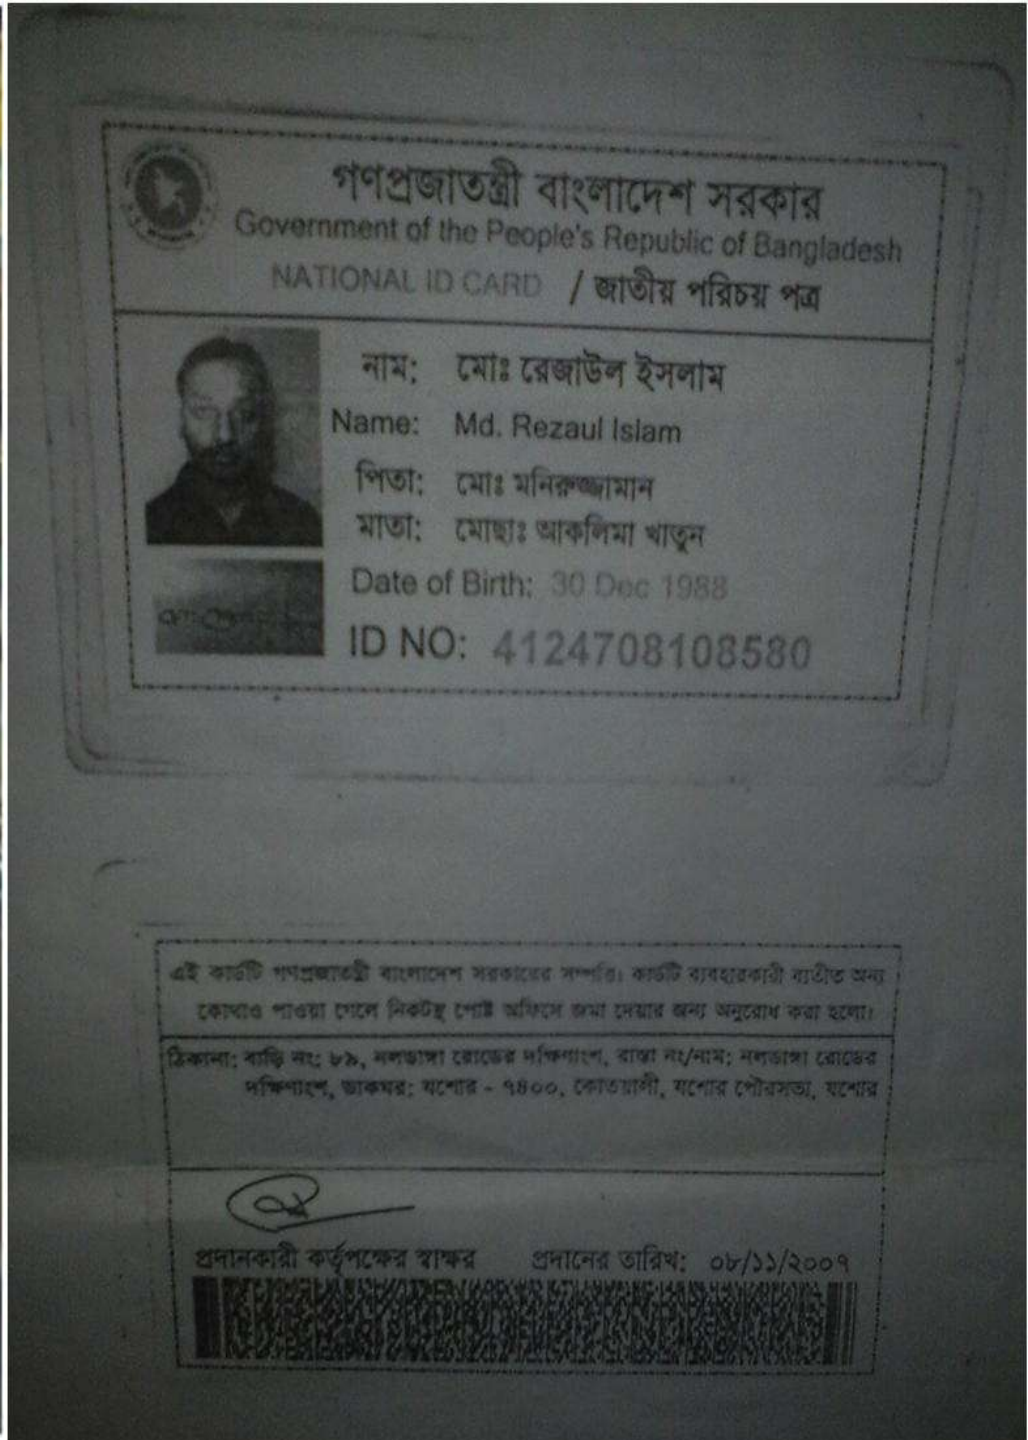 গণপ্রজাতন্ত্রী বাংলাদেশ সরকার
Government of the People's Republic of Bangladesh
NATIONAL ID CARD / জাতীয় পরিচয় পত্র
নাম: মোঃ রেজাউল ইসলাম
Name: Md. Rezaul Islam
পিতা: মোঃ মনিরুজ্জামান
মাতা: মোছাঃ আকলিমা খাতুন
Date of Birth: 30 Dec 1988
ID NO: 4124708108580
এই কার্ডটি গণপ্রজাতন্ত্রী বাংলাদেশ সরকারের সম্পত্তি। কার্ডটি ব্যবহারকারী ব্যতীত অন্য
কোথাও পাওয়া গেলে নিকটস্থ পোষ্ট অফিসে জমা দেয়ার জন্য অনুরোধ করা হলো।
ঠিকানা: বাড়ি নং: ৮৯, নলডাঙ্গা রোডের দক্ষিণাংশ, রাস্তা নং/নাম: নলডাঙ্গা রোডের
দক্ষিণাংশ, ডাকঘর: যশোর - ৭৪০০, কোতয়ালী, যশোর পৌরসভা, যশোর
প্রদানকারী কর্তৃপক্ষের স্বাক্ষর প্রদানের তারিখ: ০৮/১১/২০০৭